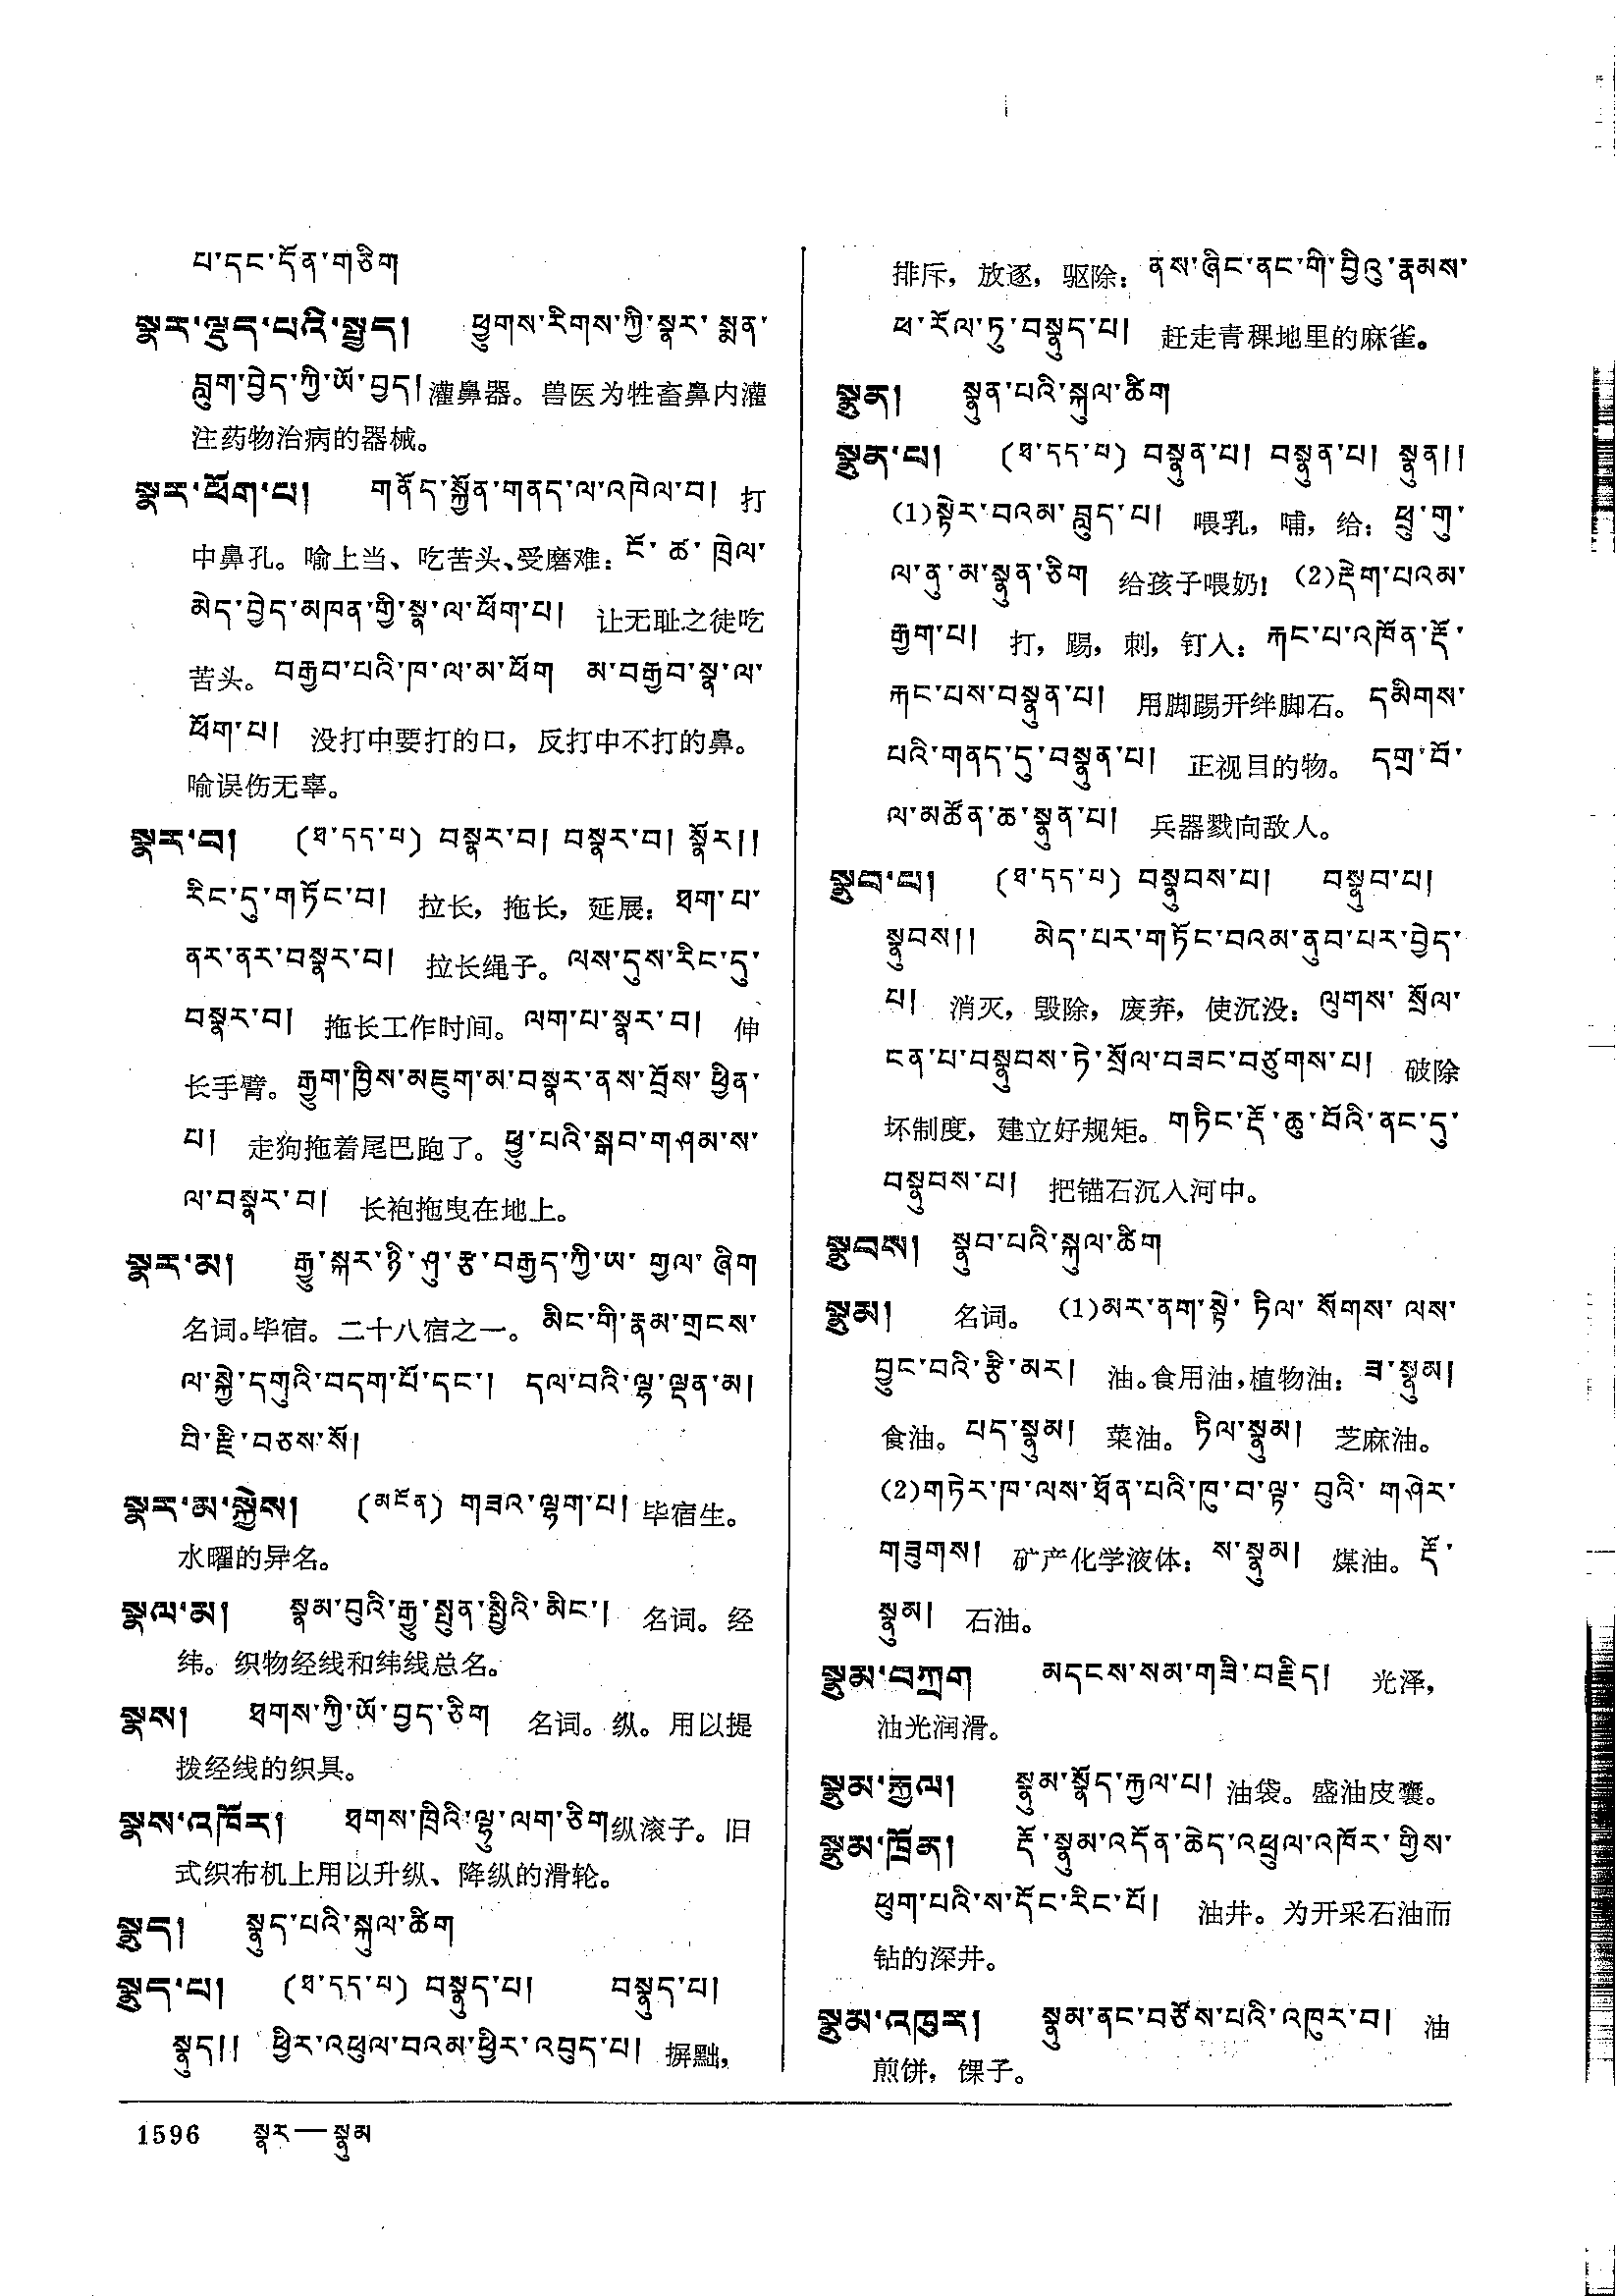 པ་དང་དོན་གཅིག
སྣར་ལྡུད་པའི་སྤྱད། ཕྱུགས་རིགས་ཀྱི་སྣར་ སྨན་
བླུག་བྱེད་ཀྱི་ཡོ་བྱད། 灌鼻器。兽医为牲畜鼻内灌
注药物治病的器械。
སྣར་ཕོག་པ། གནོད་སྐྱོན་གནད་ལ་འཁེལ་བ། 打
中鼻孔。喻上当、吃苦头、受磨难: ངོ་ ཚ་ ཁྲེལ་
མེད་བྱེད་མཁན་གྱི་སྣ་ལ་ཕོག་པ། 让无耻之徒吃
苦头。བརྒྱབ་པའི་ཁ་ལ་མ་ཕོག མ་བརྒྱབ་སྣ་ལ་
ཕོག་པ། 没打中要打的口，反打中不打的鼻。
喻误伤无辜。
སྣར་བ། (ཐ་དད་པ) བསྣར་བ། བསྣར་བ། སྣོར།།
རིང་དུ་གཏོང་བ། 拉长，拖长，延展: ཐག་པ་
ནར་ནར་བསྣར་བ། 拉长绳子。ལས་དུས་རིང་དུ་
བསྣར་བ། 拖长工作时间。ལག་པ་སྣར་བ། 伸
长手臂。རྒྱུག་ཁྱིས་མཇུག་མ་བསྣར་ནས་བྲོས་ ཕྱིན་
པ། 走狗拖着尾巴跑了。ཕྱུ་པའི་སྒབ་གཤམ་ས་
ལ་བསྣར་བ། 长袍拖曳在地上。
སྣར་མ། རྒྱུ་སྐར་ཉི་ཤུ་རྩ་བརྒྱད་ཀྱི་ཡ་ གྱལ་ ཞིག
名词。毕宿。二十八宿之一。མིང་གི་རྣམ་གྲངས་
ལ་སྐྱེ་དགུའི་བདག་པོ་དང་། དལ་བའི་ལྷ་ལྡན་མ།
བི་རྫི་བཅས་སོ།
སྣར་མ་སྐྱེས། (མངོན) གཟའ་ལྷག་པ། 毕宿生。
水曜的异名。
སྣལ་མ། སྣམ་བུའི་རྒྱུ་སྤུན་སྤྱིའི་མིང་། 名词。经
纬。织物经线和纬线总名。
སྣས། ཐགས་ཀྱི་ཡོ་བྱད་ཅིག 名词。纵。用以提
拨经线的织具。
སྣས་འཁོར། ཐགས་ཁྲིའི་ལྷུ་ལག་ཅིག 纵滚子。旧
式织布机上用以升纵、降纵的滑轮。
སྣུད། སྣུད་པའི་སྐུལ་ཚིག
སྣུད་པ། (ཐ་དད་པ) བསྣུད་པ། བསྣུད་པ།
སྣུད།། ཕྱིར་འཕུལ་བའམ་ཕྱིར་འབུད་པ། 摒黜，
排斥，放逐，驱除: ནས་ཞིང་ནང་གི་བྱིའུ་རྣམས་
ཕ་རོལ་ཏུ་བསྣུད་པ། 赶走青稞地里的麻雀。
སྣུན། སྣུན་པའི་སྐུལ་ཚིག
སྣུན་པ། (ཐ་དད་པ) བསྣུན་པ། བསྣུན་པ། སྣུན།།
(1)སྟེར་བའམ་བླུད་པ། 喂乳，哺，给: ཕྲུ་གུ་
ལ་ནུ་མ་སྣུན་ཅིག 给孩子喂奶! (2)རྡེག་པའམ་
རྒྱག་པ། 打，踢，刺，钉入: རྐང་པ་འཁོན་རྡོ་
རྐང་པས་བསྣུན་པ། 用脚踢开绊脚石。དམིགས་
པའི་གནད་དུ་བསྣུན་པ། 正视目的物。དགྲ་བོ་
ལ་མཚོན་ཆ་སྣུན་པ། 兵器戮向敌人。
སྣུབ་པ། (ཐ་དད་པ) བསྣུབས་པ། བསྣུབ་པ།
སྣུབས།། མེད་པར་གཏོང་བའམ་ནུབ་པར་བྱེད་
པ། 消灭，毁除，废弃，使沉没: ལུགས་ སྲོལ་
ངན་པ་བསྣུབས་ཏེ་སྲོལ་བཟང་བཙུགས་པ། 破除
坏制度，建立好规矩。གཏིང་རྡོ་ཆུ་བོའི་ནང་དུ་
བསྣུབས་པ། 把锚石沉入河中。
སྣུབས། སྣུབ་པའི་སྐུལ་ཚིག
སྣུམ། 名词。(1)མར་ནག་སྟེ་ ཏིལ་ སོགས་ ལས་
བྱུང་བའི་རྩི་མར། 油。食用油，植物油: ཟ་སྣུམ།
食油。པད་སྣུམ། 菜油。ཏིལ་སྣུམ། 芝麻油。
(2)གཏེར་ཁ་ལས་ཐོན་པའི་ཁུ་བ་ལྟ་ བུའི་ གཤེར་
གཟུགས། 矿产化学液体: ས་སྣུམ། 煤油。རྡོ་
སྣུམ། 石油。
སྣུམ་བཀྲག མདངས་སམ་གཟི་བརྗིད། 光泽，
油光润滑。
སྣུམ་རྐྱལ། སྣུམ་སྣོད་རྐྱལ་པ། 油袋。盛油皮囊。
སྣུམ་ཁྲོན། རྡོ་སྣུམ་འདོན་ཆེད་འཕྲུལ་འཁོར་གྱིས་
ཕུག་པའི་ས་དོང་རིང་པོ། 油井。为开采石油而
钻的深井。
སྣུམ་འཁུར། སྣུམ་ནང་བཙོས་པའི་འཁུར་བ། 油
煎饼，馃子。
1596 སྣར—སྣུམ